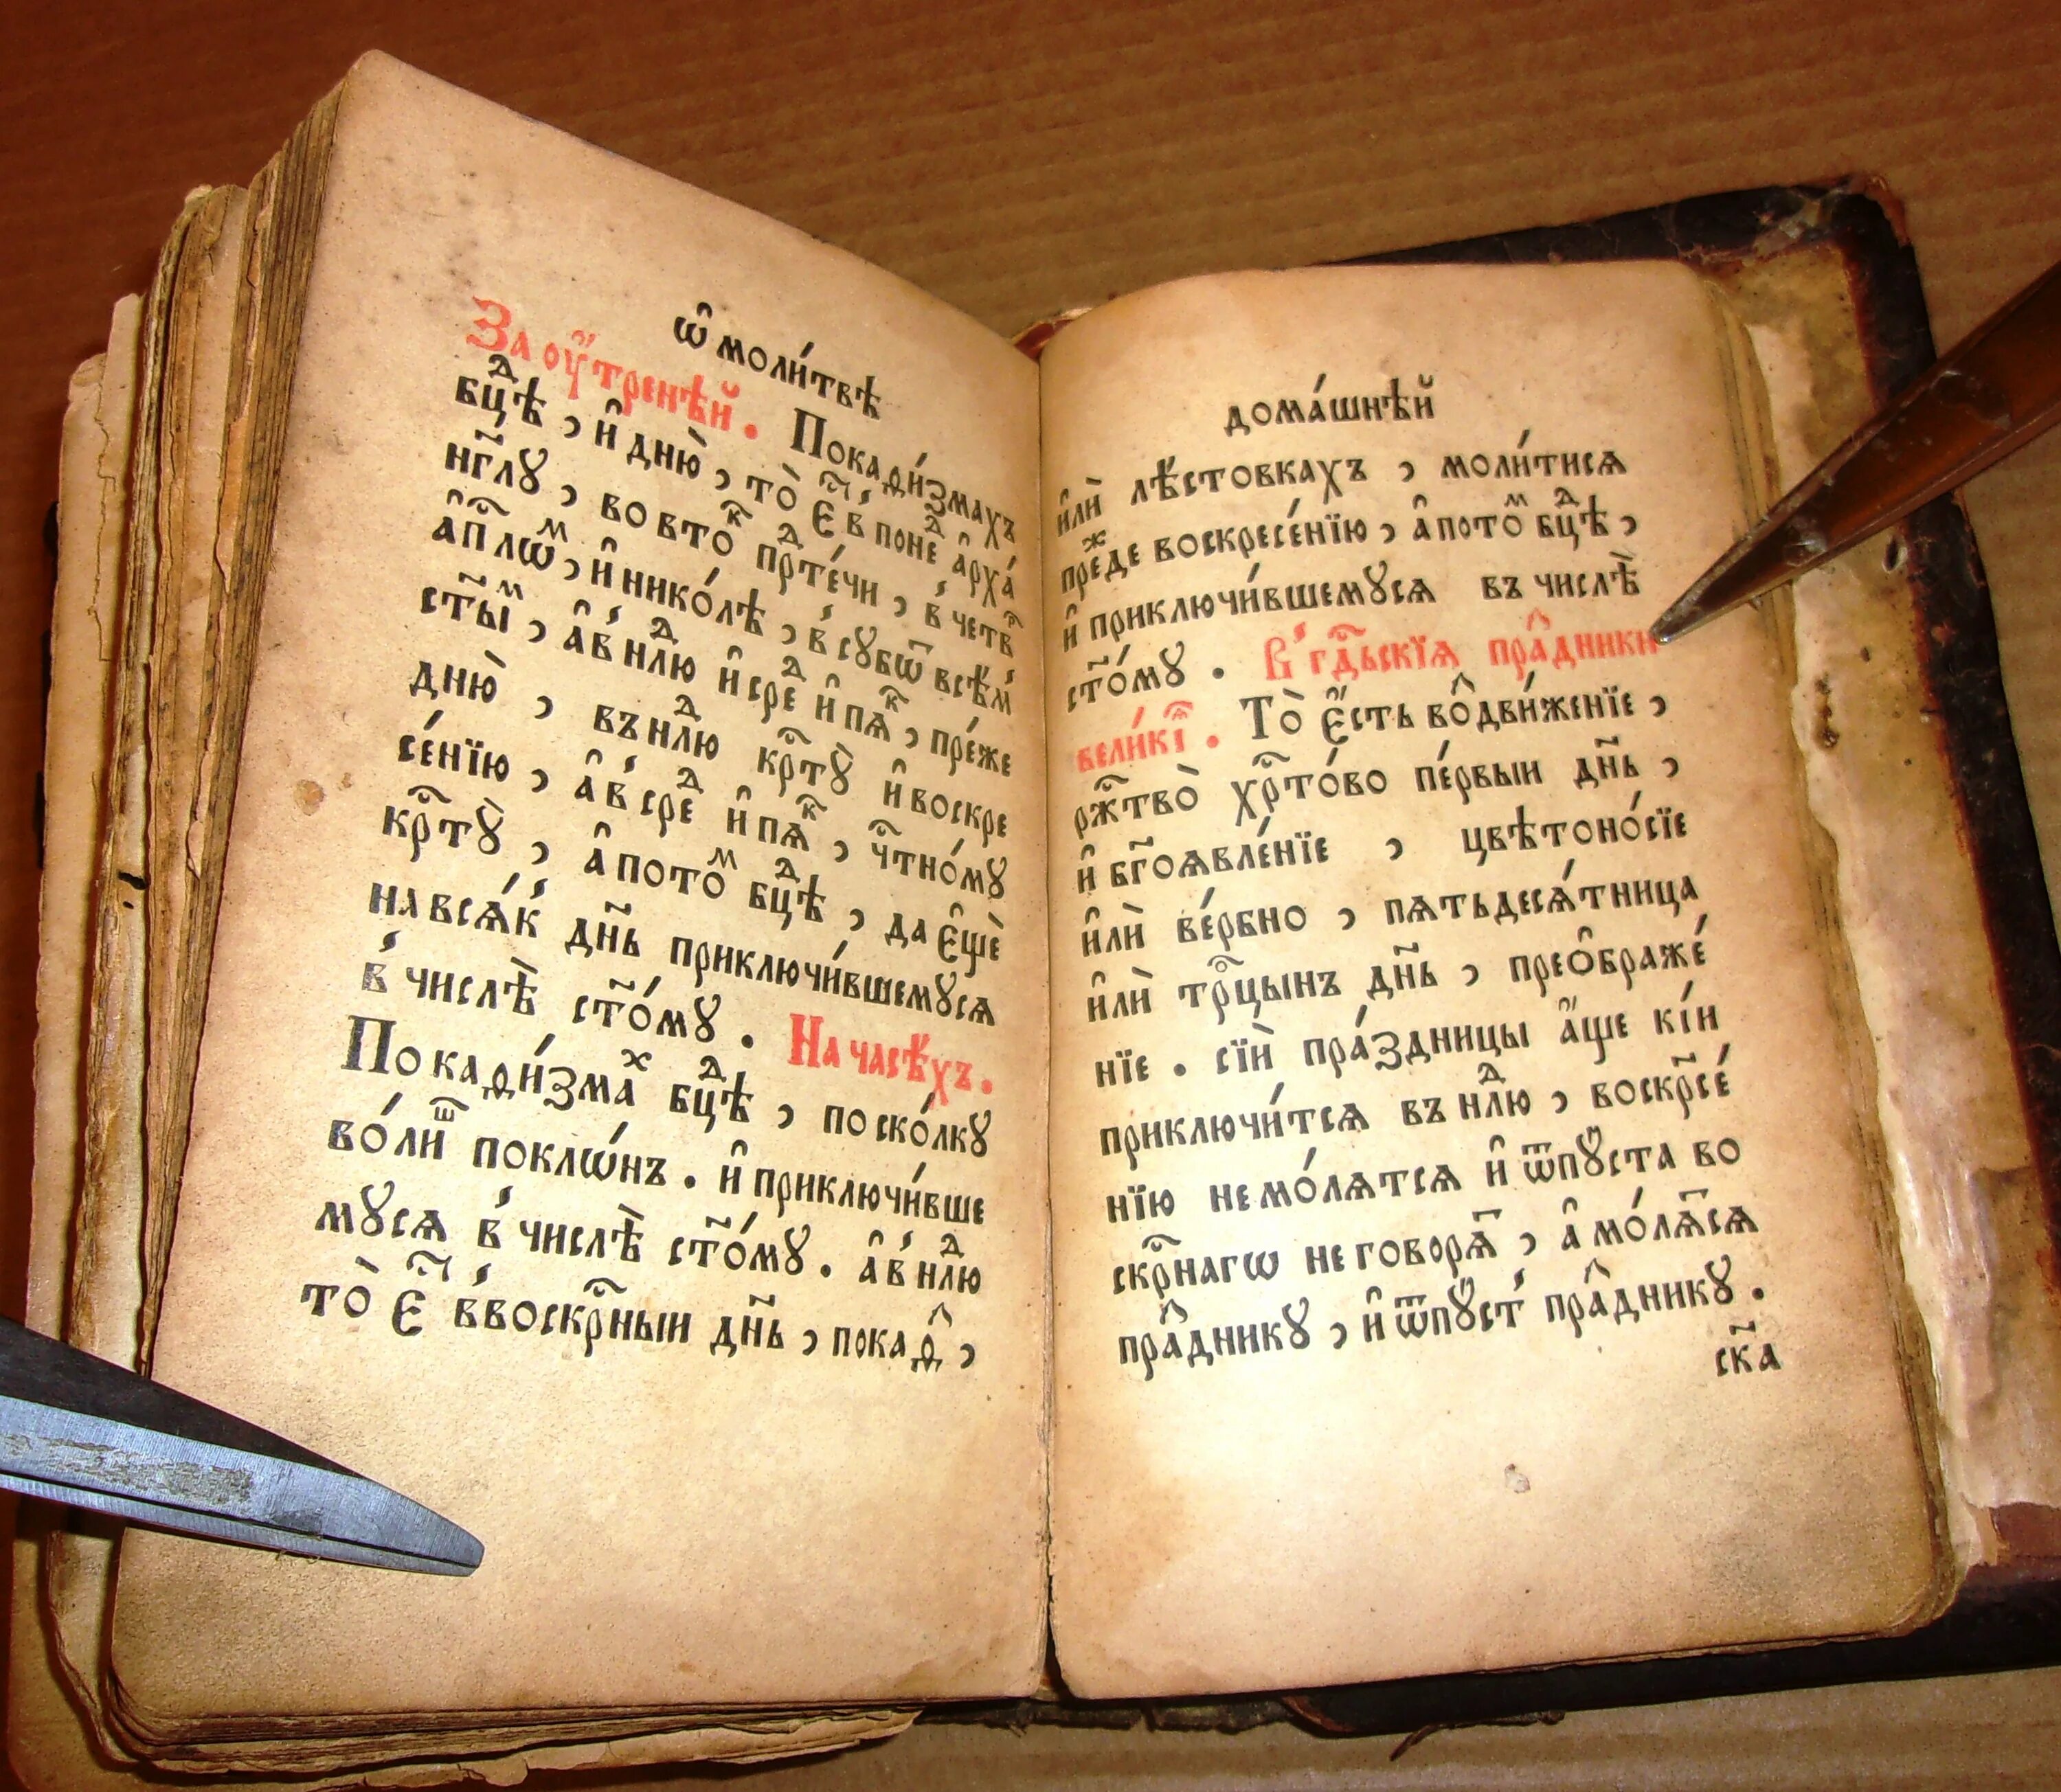 ѡ҆ моли́твѣ
За ᲂу҆́тренѣй. Покаѳи́змахъ
бцⷣѣ, и҆ дню̀, то̀ є҆́ в҆ понеⷣ а҆рха́
нг҃лꙋ, во втоⷦ҇ прⷣте́чи, в҆ четв
а҆пⷭ҇лѡⷨ, и҆ нико́лѣ, в҆ сꙋбѡⷮ всѣ́м
ст҃ыⷨ, а҆ в҆ нлⷣю и҆ среⷣ и҆ пѧⷦ҇, пре́же
дню̀, въ нлⷣю крⷭ҇тꙋ̀ и҆ воскре
се́нїю, а҆ в҆ среⷣ и҆ пѧⷦ҇, чⷭ҇тно́мꙋ
крⷭ҇тꙋ̀, а҆ потоⷨ бцⷣѣ, да є҆щѐ
на всѧ́к дн҃ь приключи́вшемꙋсѧ
в҆ числѣ̀ ст҃о́мꙋ. На часѣ́хъ.
Покаѳи́змаⷯ бцⷣѣ, по ско́лкꙋ
во́лиⷲ поклѡ́нъ. и҆ приключи́вше
мꙋсѧ в҆ числѣ̀ ст҃о́мꙋ. а҆ в҆ нлⷣю
то̀ є҆ⷭ҇ в҆ воскрⷭ҇ныи дн҃ь, покаѳ,
дома́шнѣй
и҆лѝ лѣ́стовкахъ, моли́тисѧ
преⷤде воскресе́нїю, а҆ потоⷨ бцⷣѣ,
и҆ приключи́вшемꙋсѧ въ числѣ̀
ст҃о́мꙋ. В҆ гдⷭ҇ьскїѧ праⷥдники
вели́кїѧ. То̀ є҆́сть воⷥдви́женїе,
ржⷭ҇тво̀ хрⷭ҇то́во пе́рвыи дн҃ь,
и҆ бг҃оѧвле́нїе, цвѣтоно́сїе
и҆лѝ ве́рбно, пѧтьдесѧ́тница
и҆лѝ трⷪ҇цынъ дн҃ь, преѡбраже́
нїе. сїѝ пра́здницы а҆́ще кі́и
приключи́тсѧ въ нлⷣю, воскр҃се́
нїю не мо́лѧтсѧ и҆ ѿпꙋ́ста во
скрⷭ҇нагѡ не говорѧⷮ, а҆ мо́лѧⷮсѧ
праⷥдникꙋ, и҆ ѿпꙋ́ст праⷥдникꙋ.
ск҃а